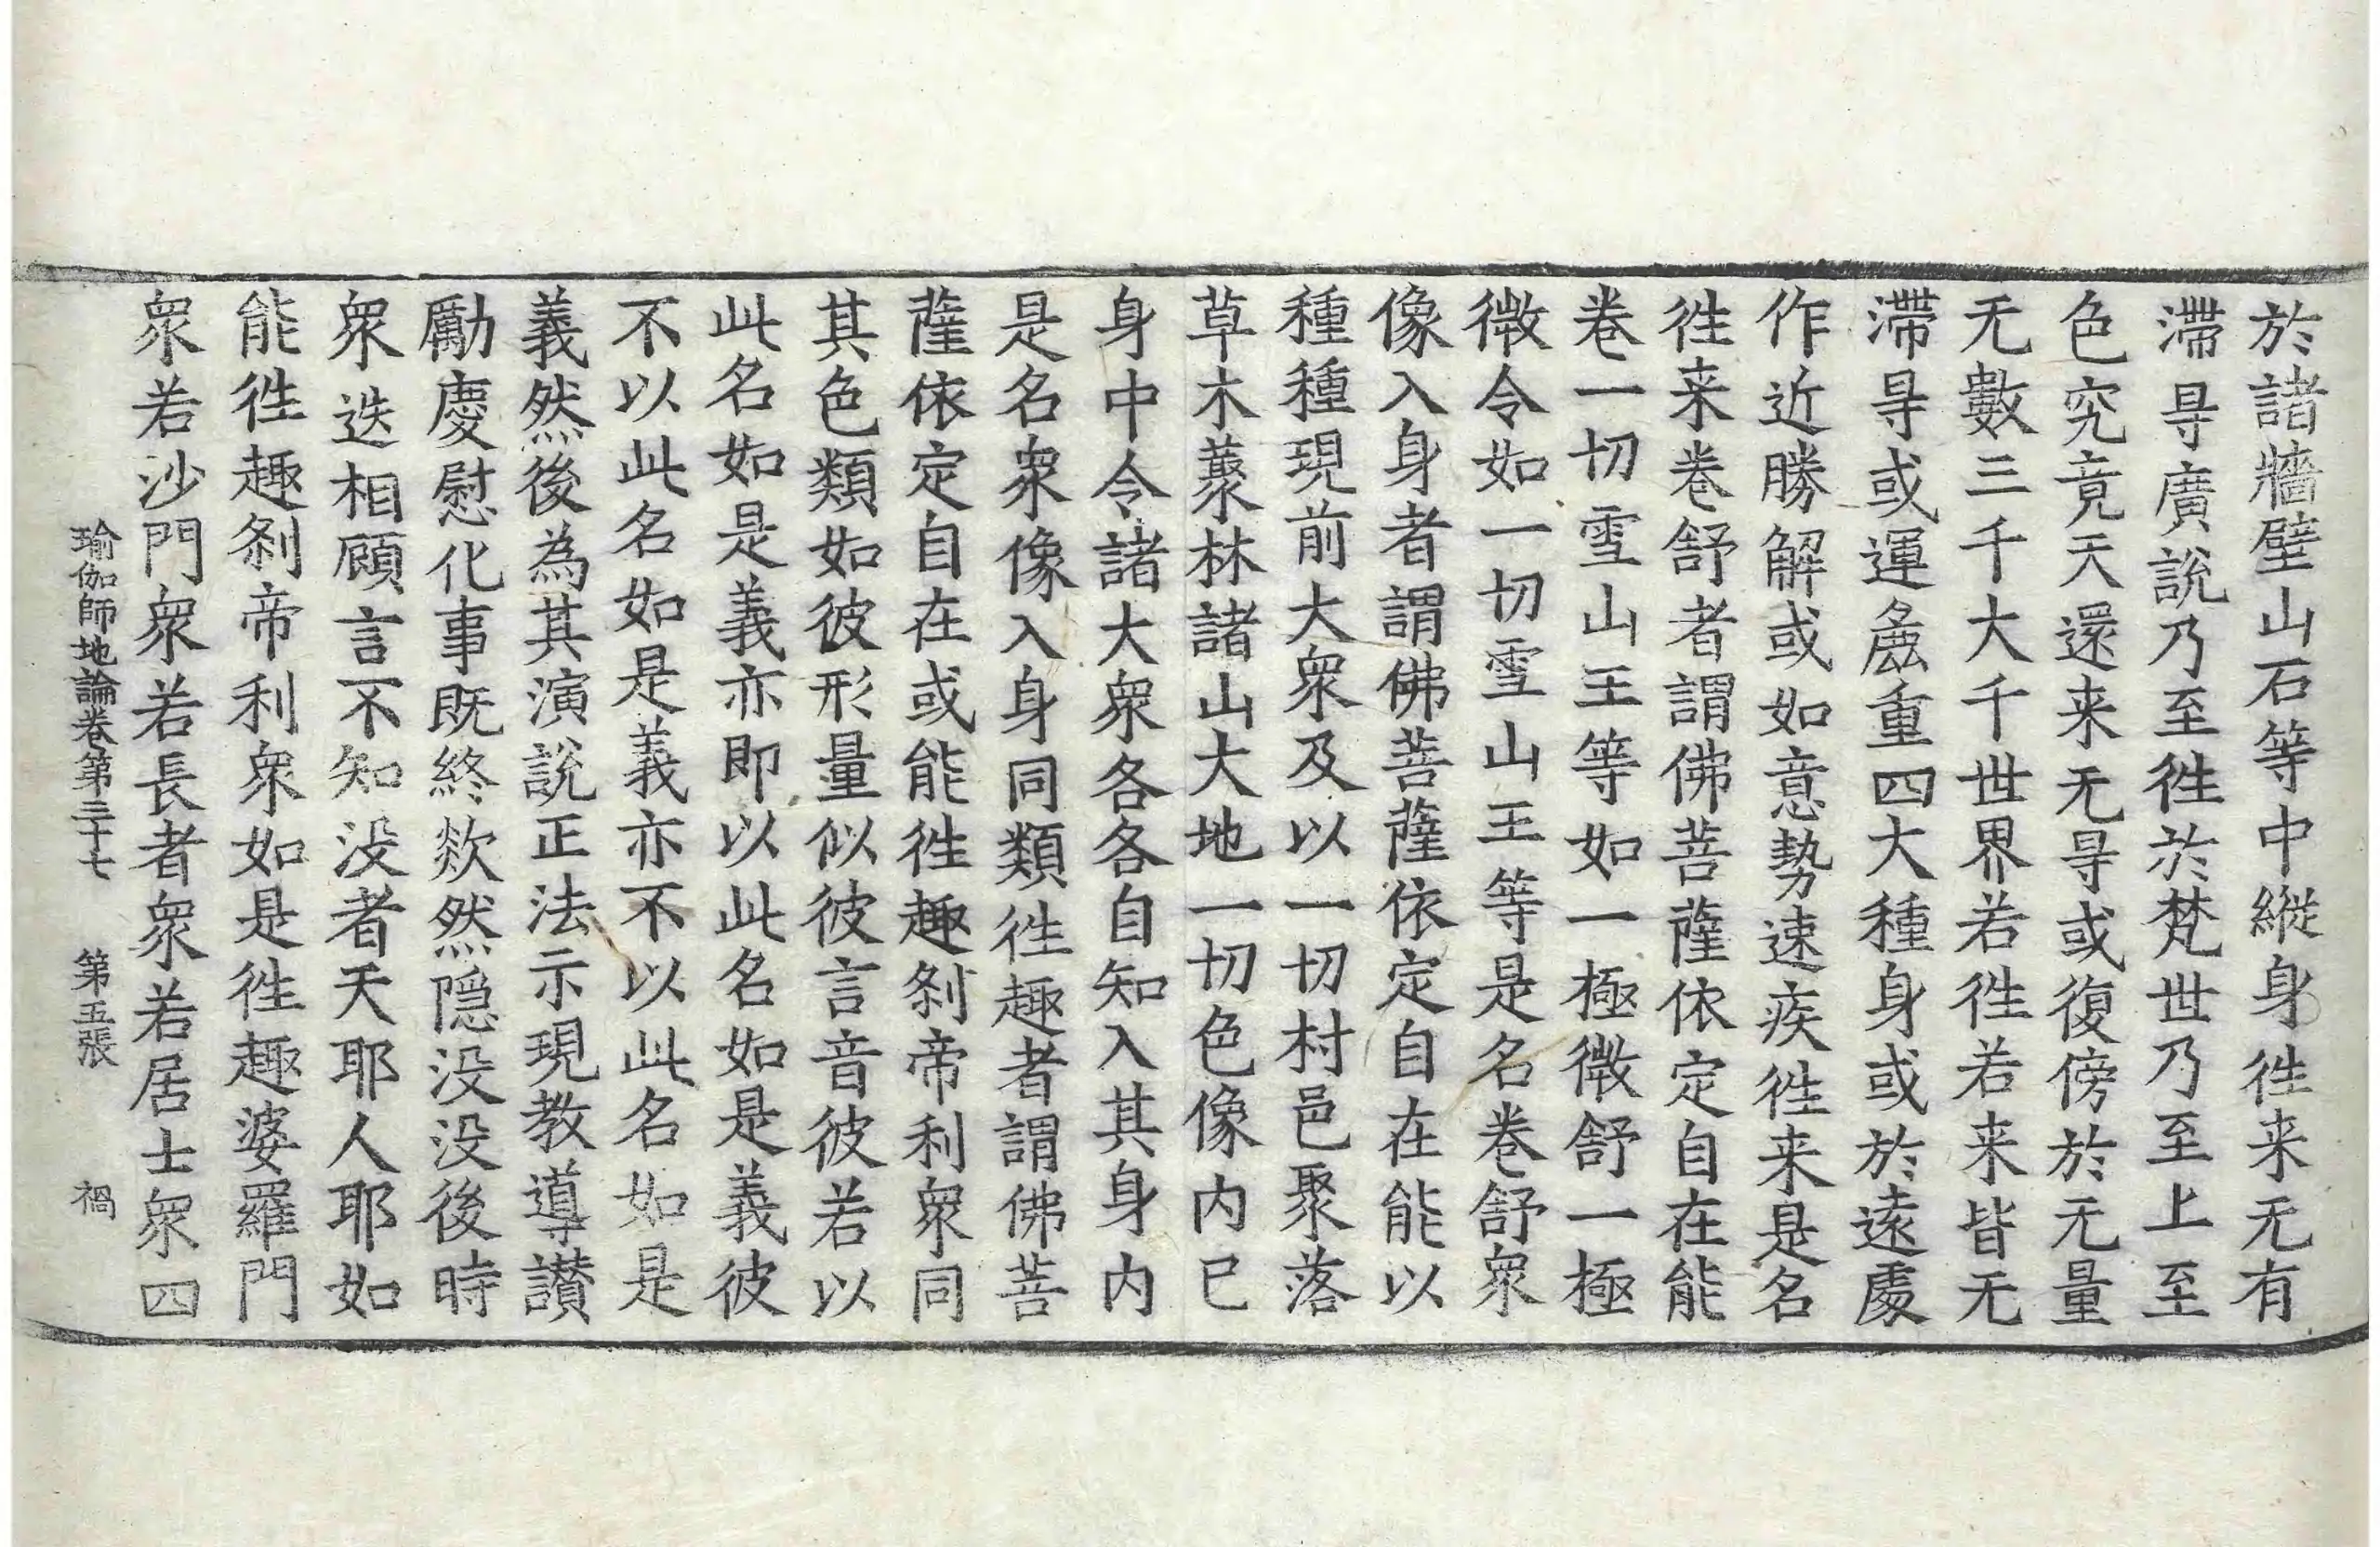 於諸牆壁山石等中縱身徃来无有
滯㝵廣說乃至徃於梵世乃至上至
色究竟天還来无㝵或復傍於无量
无數三千大千世界若徃若来皆无
滯㝵或運麁重四大種身或於遠處
作近勝解或如意勢速疾徃来是名
徃来卷舒者謂佛菩薩依定自在能
卷一切雪山王等如一極微舒一極
微令如一切雪山王等是名卷舒衆
像入身者謂佛菩薩依定自在能以
種種現前大衆及以一切村邑聚落
草木藂林諸山大地一切色像内已
身中令諸大衆各各自知入其身内
是名衆像入身同類徃趣者謂佛菩
薩依定自在或能徃趣刹帝利衆同
其色類如彼形量似彼言音彼若以
此名如是義亦即以此名如是義彼
不以此名如是義亦不以此名如是
義然後為其演說正法示現教導讃
勵慶慰化事既終欻然隠没没後時
衆迭相顧言不知没者天耶人耶如
能徃趣刹帝利衆如是徃趣婆羅門
衆若沙門衆若長者衆若居士衆四
瑜伽師地論卷第三十七　第五張　禍